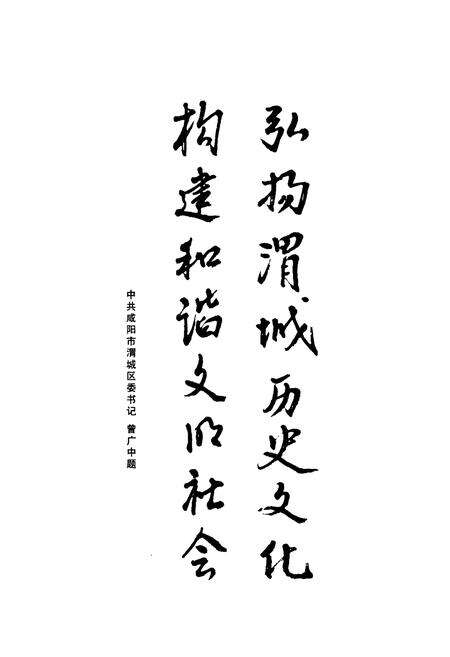 弘扬渭城历史文化
构建和谐文明社会
中共咸阳市渭城区委书记 曾广中题